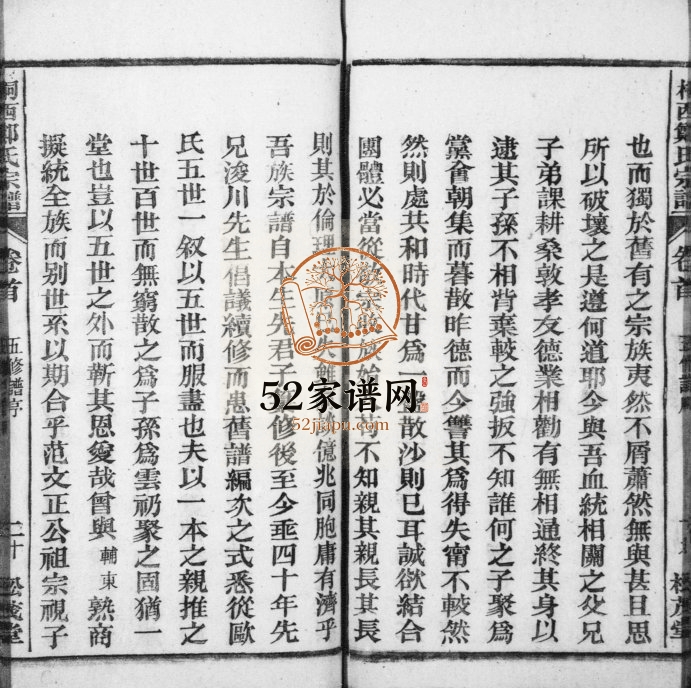 西鄭氏宗譜 卷首 松茂堂
也而獨於舊有之宗族夷然不屑蕭然無與甚且思
所以破壞之是遵何道耶今與吾血統相關之父兄
子弟課耕桑敦孝友德業相勸有無相通終其身以
逮其子孫不相背棄較之強扳不知誰何之子聚爲
黨會朝集而暮散昨德而今讐其爲得失甯不較然
然則處共和時代甘爲一散沙則已耳誠欲結合
團體必當從宗族始不知親其親長其長
則其於倫理失雖億兆同胞庸有濟乎
吾族宗譜自本生先君子修後至今垂四十年先
兄浚川先生倡議續修而患舊譜編次之式悉從歐
氏五世一叙以五世而服盡也夫以一本之親推之
十世百世而無窮散之爲子孫爲雲礽聚之固猶一
堂也豈以五世之外而靳其恩愛哉曾與輔東熟商
擬統全族而别世系以期合乎范文正公祖宗視子
桐西鄭氏宗譜 卷首 五修譜序 二十 松茂堂
52家谱网
52jiapu.com